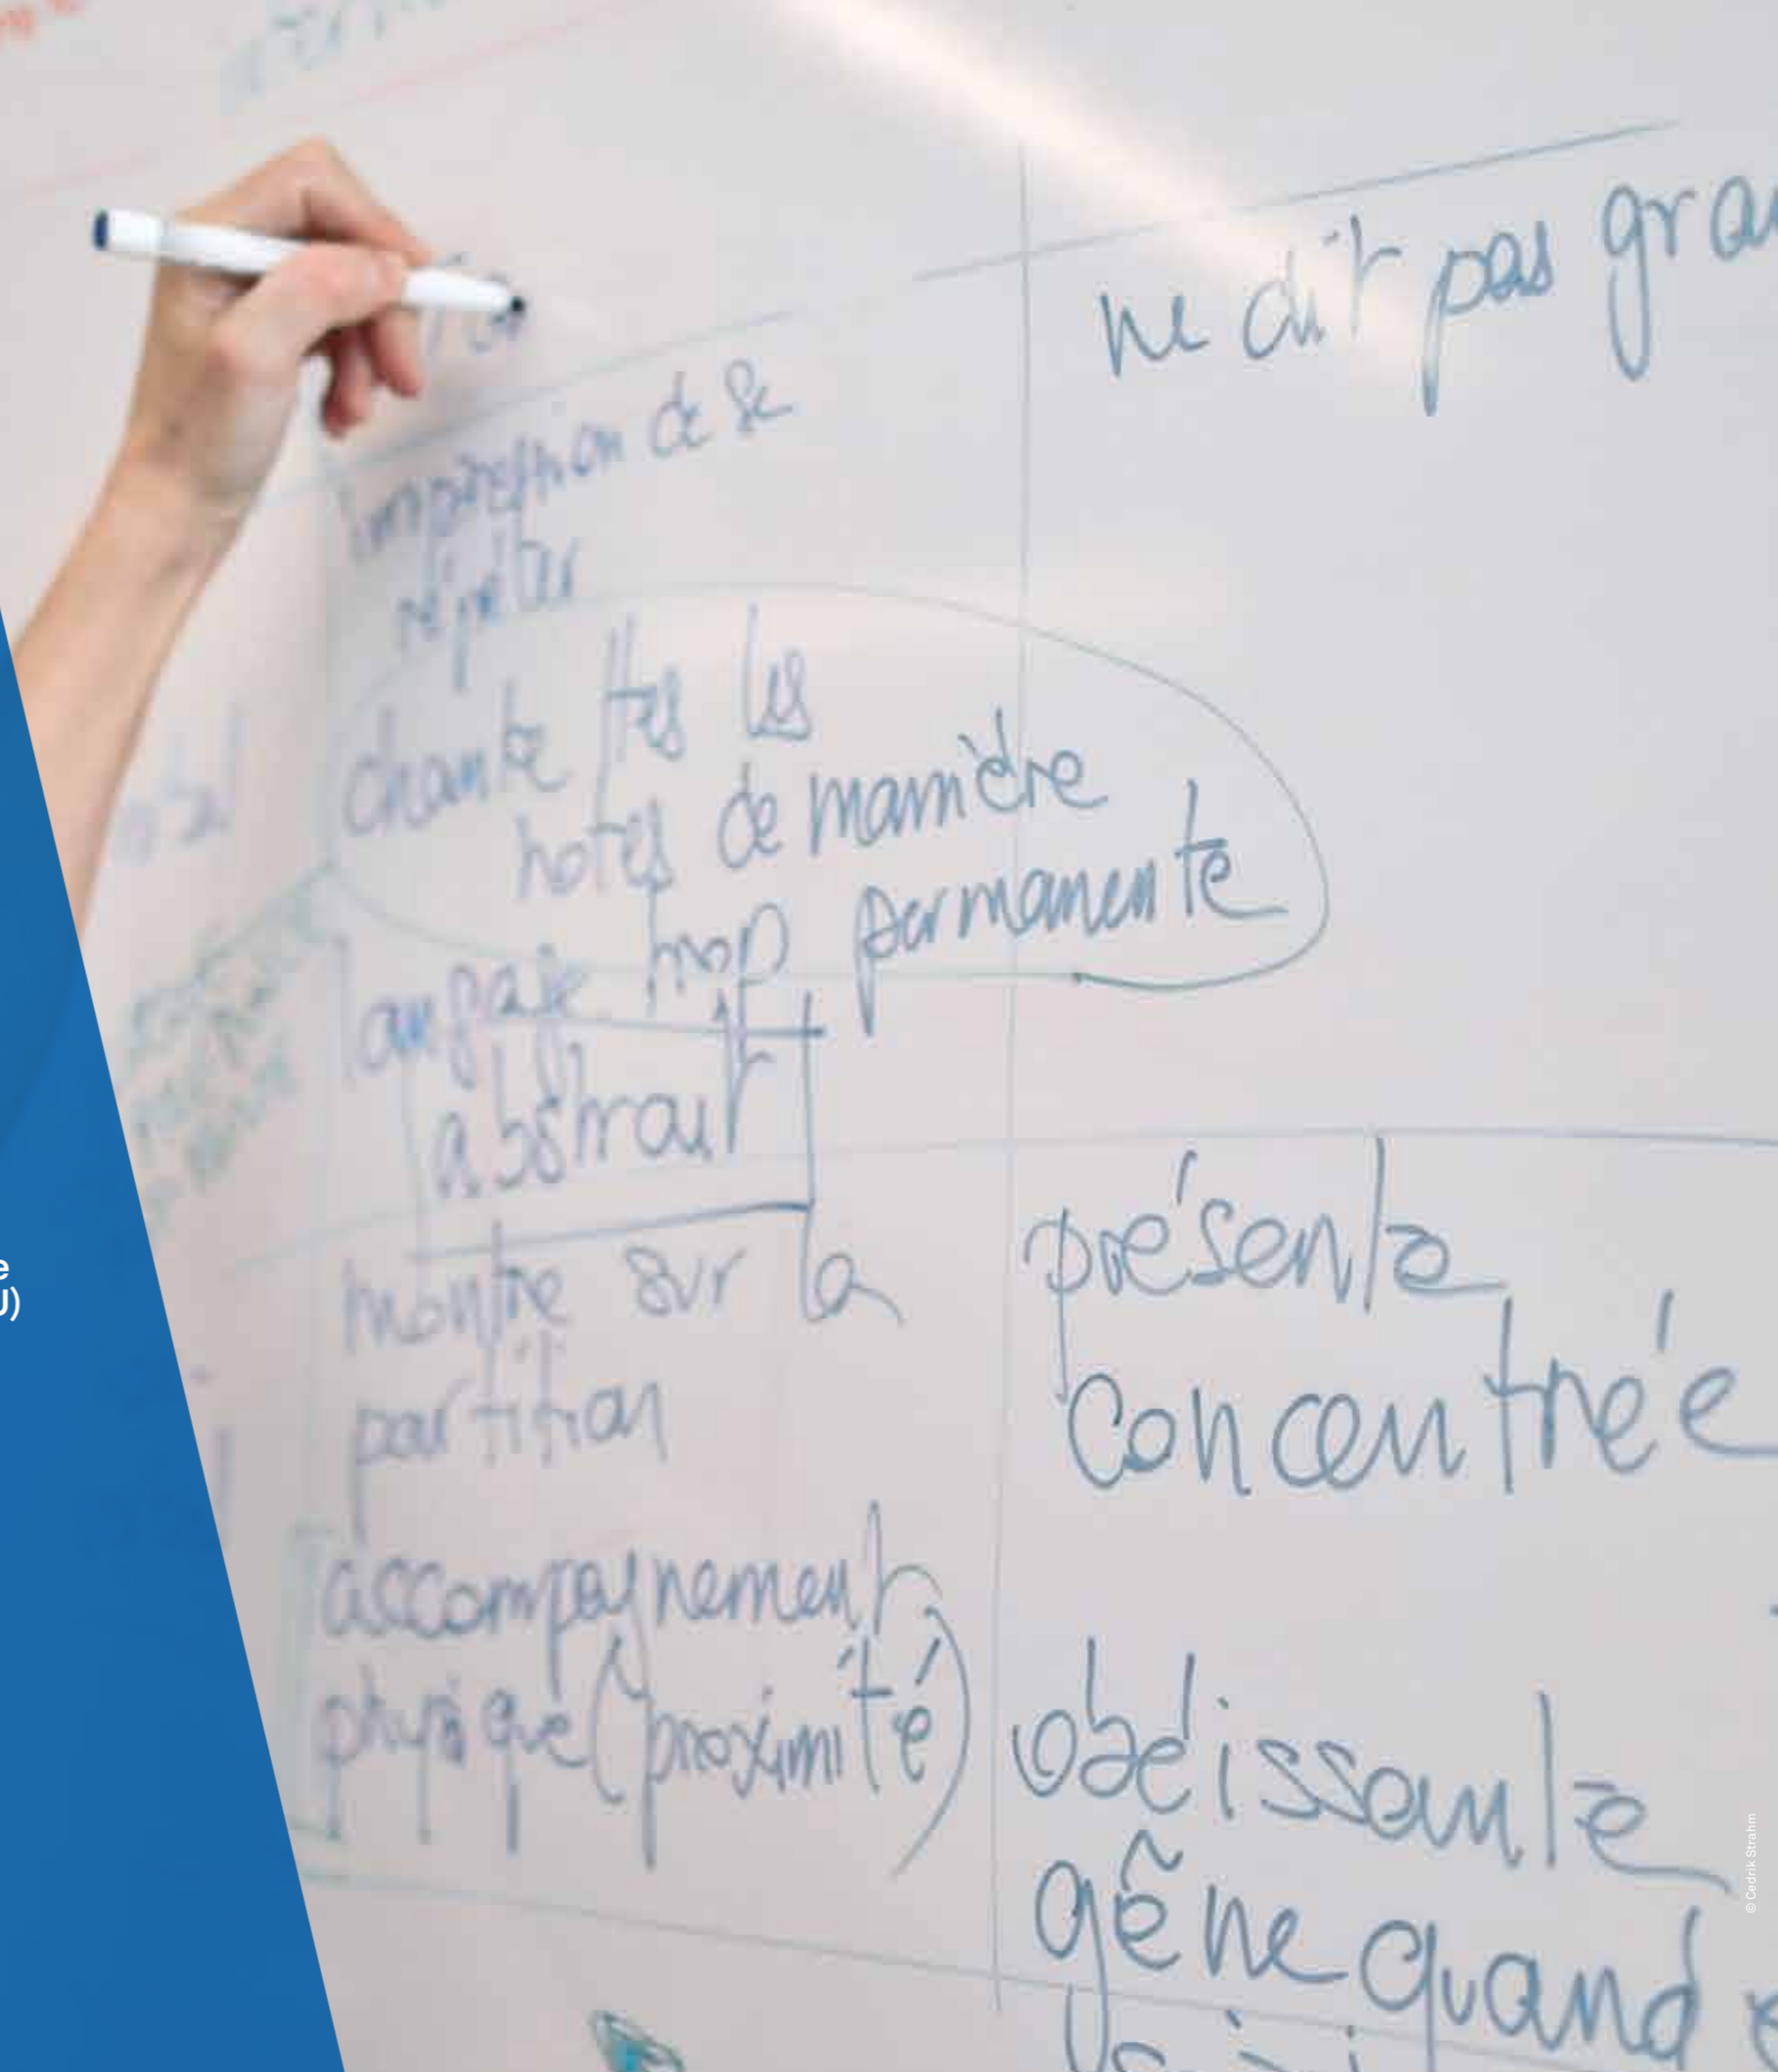 impression de se
répéter
chante ttes les
notes de manière
permanente
langage trop
abstrait
montre sur la
partition
accompagnement
physique (proximité)
ne dit pas
présente
concentrée
obéissante
gêne quand
e
J)
© Cedrik Strahm